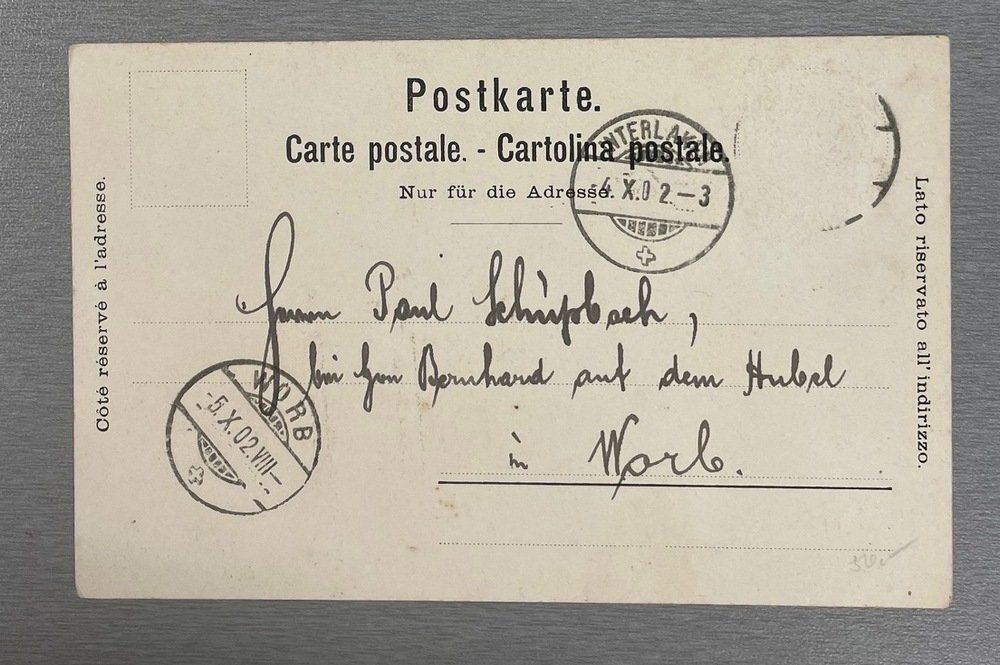 Postkarte.
Carte postale. - Cartolina postale.
Nur für die Adresse.
Côté réservé à l'adresse.
Lato riservato all' indirizzo.
INTERLAKEN
-4.X.02.-3
Herrn Paul Schüpbach,
bei Hrn Bernhard auf dem Hubel
in Worb.
WORB
-5.X.02.VIII-